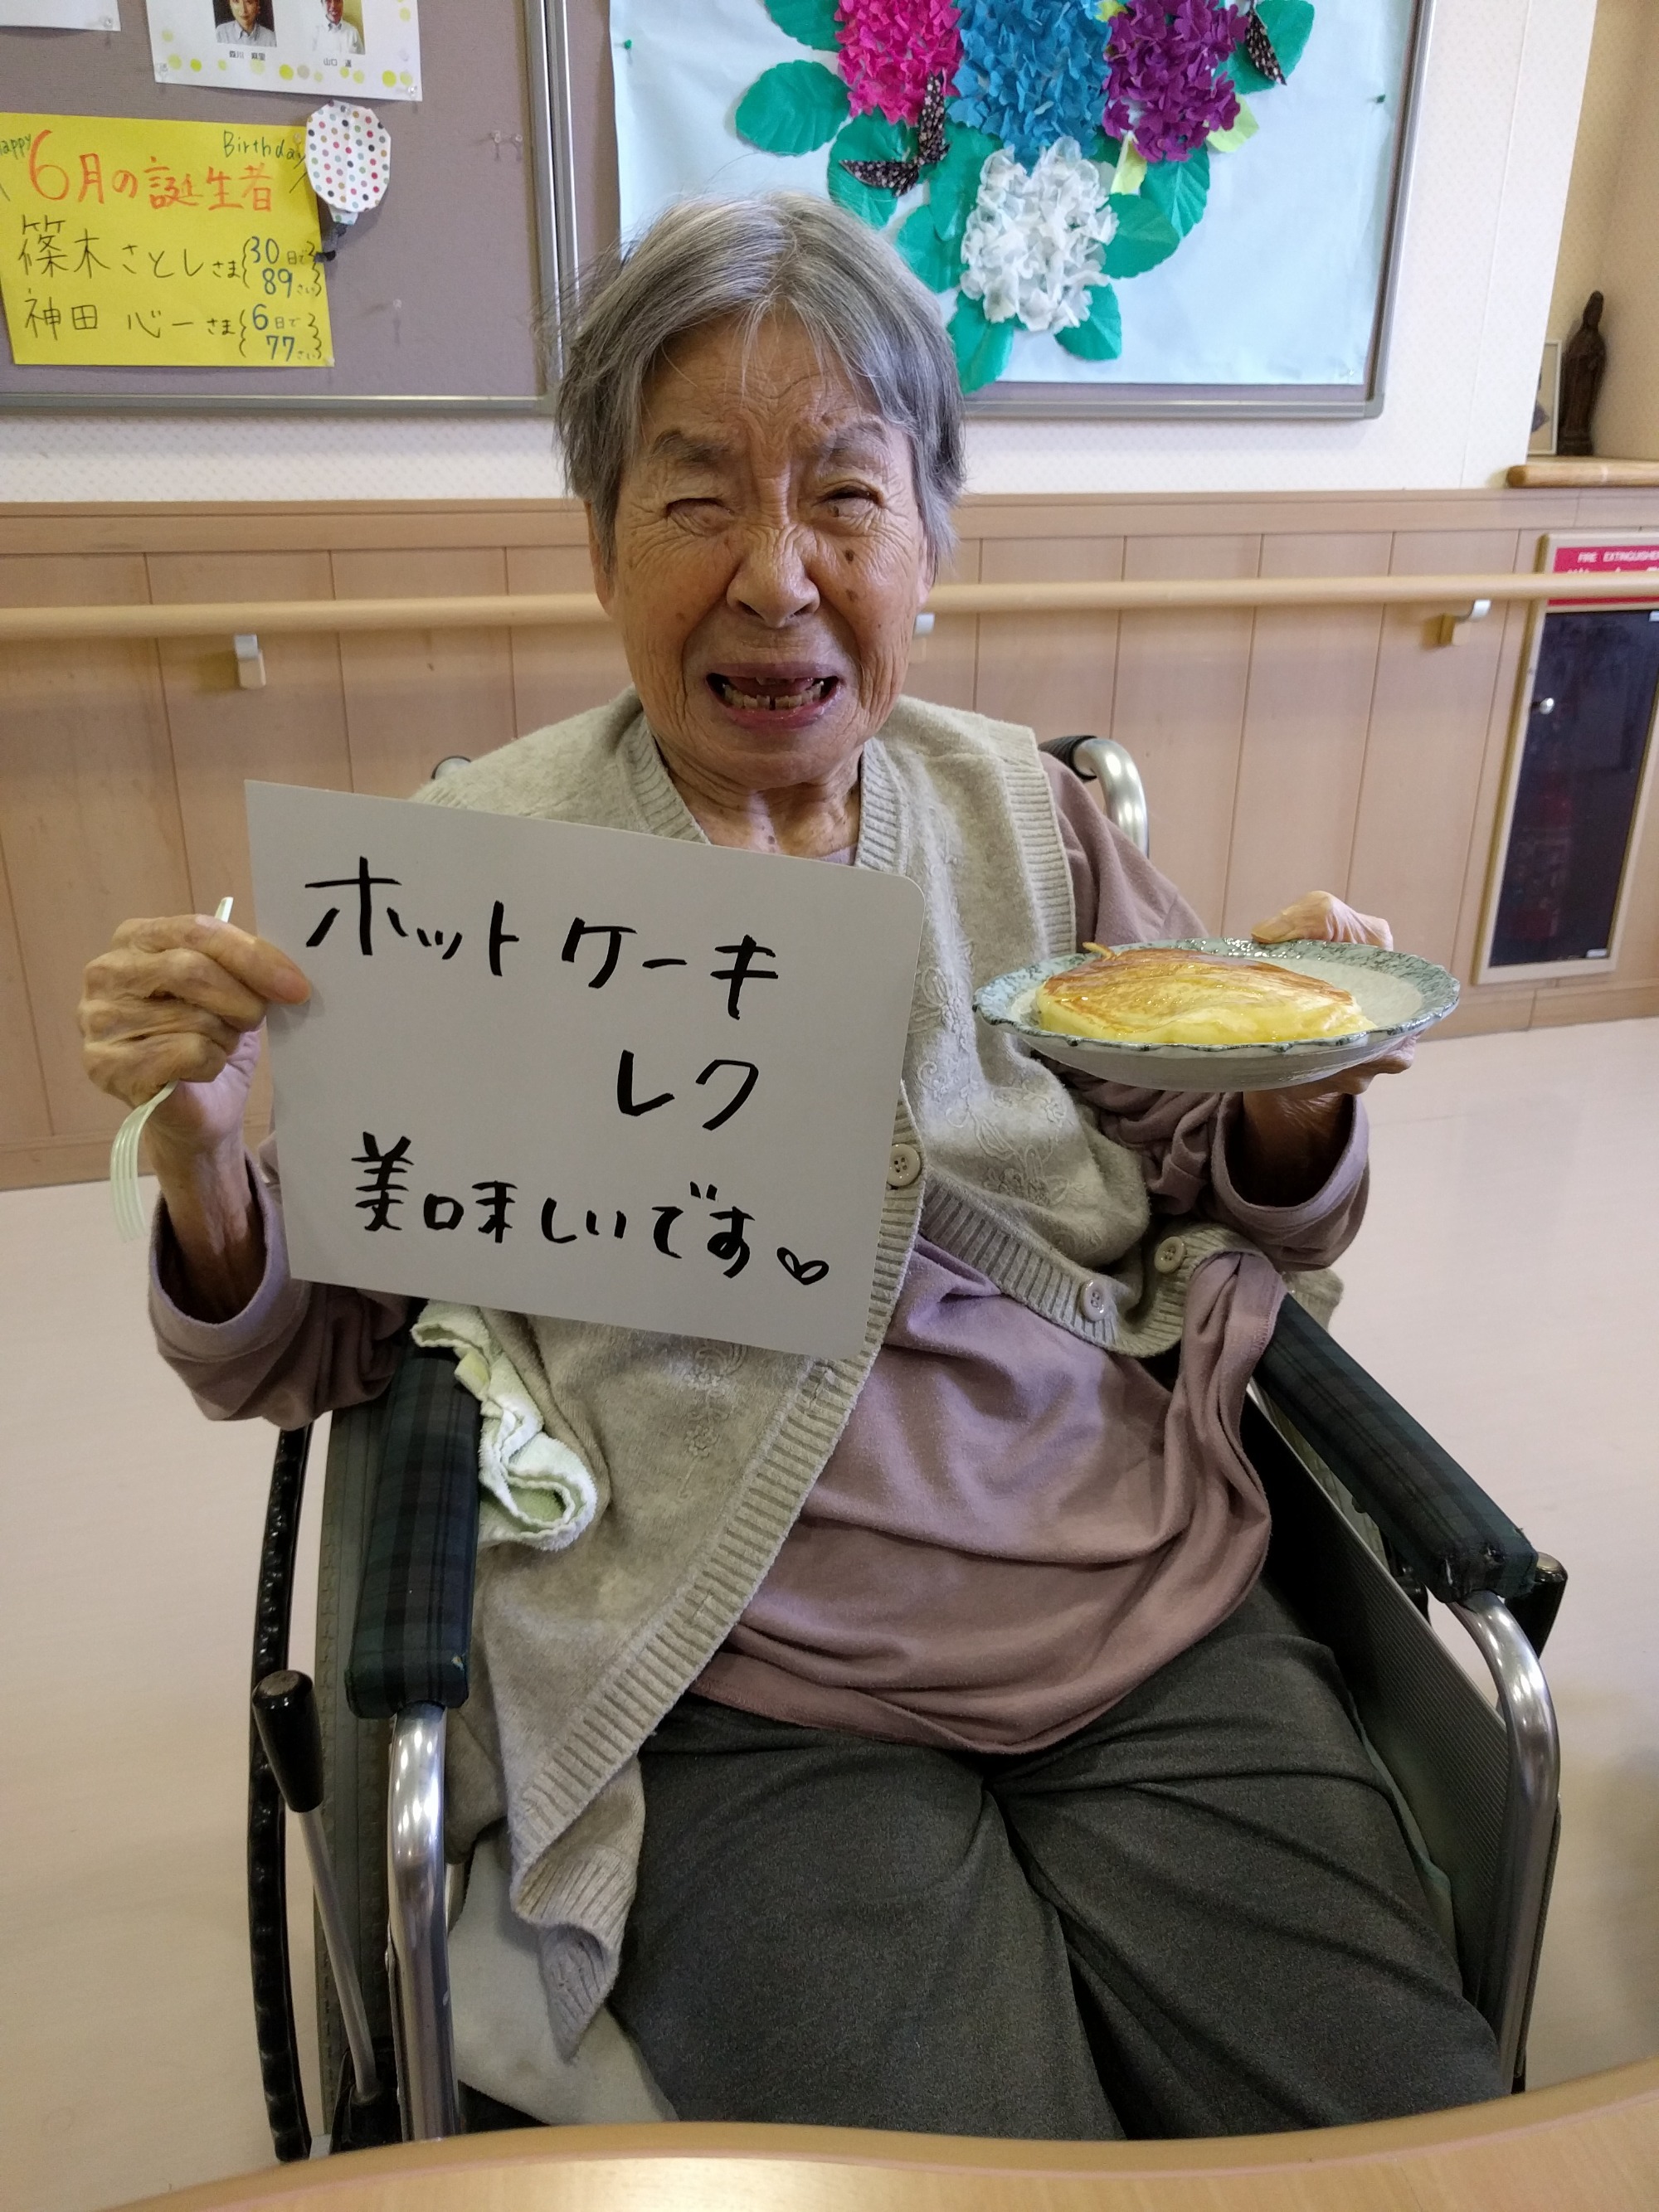 森川 麻里
山口 遥
Happy Birthday
6月の誕生者
篠木さとしさま{30日で
89さい}
神田 心一さま{6日で
77さい}
FIRE EXTINGUISHER
ホットケーキ
レク
美味しいです